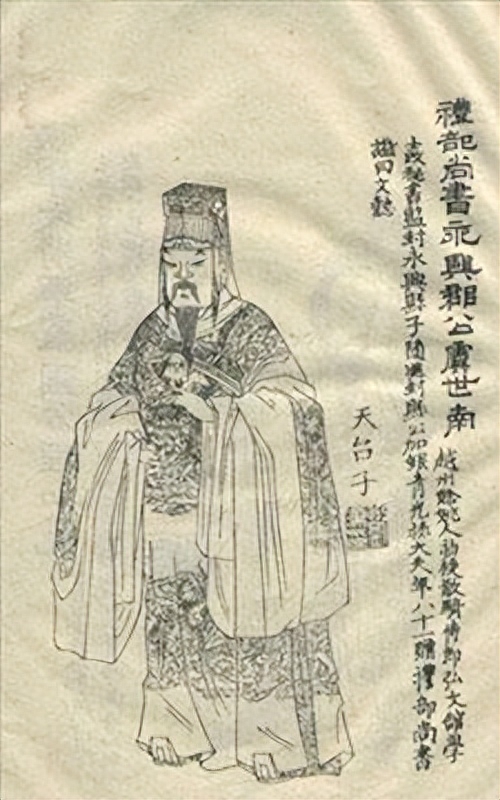 禮部尚書永興郡公虞世南 越州餘姚人初授散騎侍郎弘文館學
士改秘書監封永興縣子隨進封縣公加銀青光祿大夫年八十一贈禮部尚書
謚曰文懿
天台子